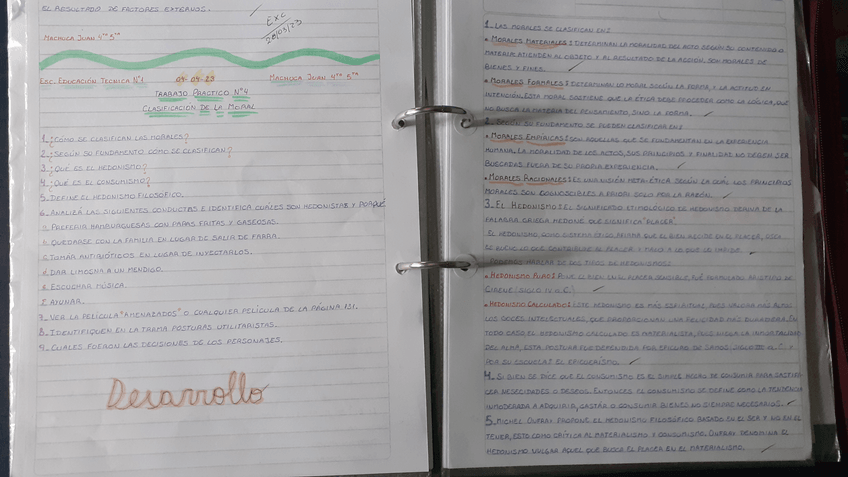 EL RESULTADO DE FACTORES EXTERNOS.
EXC
28/03/23
MACHOCA JUAN 4TO 5TA
ESC. EDUCACIÓN TECNICA N°1 04-04-23 MACHOCA JUAN 4TO 5TA
TRABAJO PRACTICO N°4
CLASIFICACIÓN DE LA MORAL
1. ¿CÓMO SE CLASIFICAN LAS MORALES?
2. ¿SEGÚN SU FUNDAMENTO CÓMO SE CLASIFICAN?
3. ¿QUE ES EL HEDONISMO?
4. ¿QUE ES EL CONSUMISMO?
5. DEFINE EL HEDONISMO FILOSOFICO.
6. ANALIZÁ LAS SIGUIENTES CONDUCTAS E IDENTIFICA CUALES SON HEDONISTAS Y PORQUÉ
PREFERIR HAMBURGUESAS CON PAPAS FRITAS Y GASEOSAS.
QUEDARSE CON LA FAMILIA EN LUGAR DE SALIR DE FARRA.
TOMAR ANTIBIÓTICOS EN LUGAR DE INYECTARLOS.
DAR LIMOSNA A UN MENDIGO.
ESCUCHAR MÚSICA.
AYUNAR.
7. VER LA PELICULA "AMENAZADOS" O CUALQUIER PELÍCULA DE LA PÁGINA 131.
8. IDENTIFIQUEN EN LA TRAMA POSTURAS UTILITARISTAS.
9. CUALES FUERON LAS DECISIONES DE LOS PERSONAJES.
Desarrollo
1. LAS MORALES SE CLASIFICAN EN:
• MORALES MATERIALES: DETERMINAN LA MORALIDAD DEL ACTO SEGÚN SU CONTENIDO O
MATERIA: ATIENDEN AL OBJETO Y AL RESULTADO DE LA ACCIÓN. SON MORALES DE
BIENES Y FINES.
• MORALES FORMALES: DETERMINAN LO MORAL SEGÚN LA FORMA, LA ACTITUD EN
INTENCIÓN. ESTA MORAL SOSTIENE QUE LA ÉTICA DEBE PROCEDER COMO LA LÓGICA, QUE
NO BUSCA LA MATERIA DEL PENSAMIENTO, SINO LA FORMA.
2. SEGÚN SU FUNDAMENTO SE PUEDEN CLASIFICAR EN:
• MORALES EMPÍRICAS: SON AQUELLAS QUE SE FUNDAMENTAN EN LA EXPERIENCIA
HUMANA. LA MORALIDAD DE LOS ACTOS, SUS PRINCIPIOS Y FINALIDAD NO DEBEN SER
BUSCADAS FUERA DE SU PROPIA EXPERIENCIA.
• MORALES RACIONALES: ES UNA VISIÓN META-ÉTICA SEGÚN LA CUAL LOS PRINCIPIOS
MORALES SON COGNOSCIBLES A PRIORI SOLO POR LA RAZÓN.
3. EL HEDONISMO: EL SIGNIFICADO ETIMOLÓGICO DE HEDONISMO DERIVA DE LA
PALABRA GRIEGA HEDONÉ QUE SIGNIFICA "PLACER".
EL HEDONISMO, COMO SISTEMA ÉTICO, AFIRMA QUE EL BIEN RESIDE EN EL PLACER,
ES BUENO LO QUE CONTRIBUYE AL PLACER Y MALO A LO QUE LO
PODEMOS HABLAR DE DOS TIPOS DE HEDONISMOS:
• HEDONISMO PURO: PONE EL BIEN EN EL PLACER SENSIBLE, FUE FORMULADO ARISTIPO DE
CIRENE (SIGLO IV a.C.)
• HEDONISMO CALCULADO: ESTE HEDONISMO ES MÁS ESPIRITUAL, PUES VALORA MÁS ALTOS
LOS GOCES INTELECTUALES, QUE PROPORCIONAN UNA FELICIDAD MÁS DURADERA. EN
TODO CASO EL HEDONISMO CALCULADO ES MATERIALISTA, PUES NIEGA LA INMORTALIDAD
DEL ALMA, ESTA POSTURA FUE DEFENDIDA POR EPICURO DE SAMOS
POR SU ESCUELA: EL EPICUREÍSMO.
4. SI BIEN SE DICE QUE EL CONSUMISMO ES EL SIMPLE ACCIÓN DE CONSUMIR PARA SATISFACER
NECESIDADES O DESEOS. ENTONCES EL CONSUMISMO SE DEFINE COMO LA TENDENCIA
INMODERADA A ADQUIRIR, GASTAR O CONSUMIR BIENES NO SIEMPRE NECESARIOS.
5. MICHEL ONFRAY PROPONE EL HEDONISMO FILOSÓFICO BASADO EN EL SER Y NO EN EL
TENER, ESTO COMO CRÍTICA AL MATERIALISMO Y CONSUMISMO. ONFRAY DENOMINA EL
HEDONISMO VULGAR AQUEL QUE BUSCA EL PLACER EN EL MATERIALISMO.